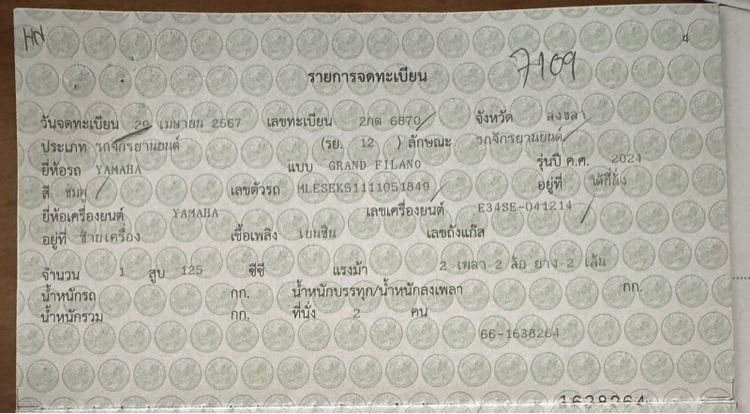 HN
4
7109
รายการจดทะเบียน
วันจดทะเบียน 29 เมษายน 2567 เลขทะเบียน 2กต 6870 จังหวัด สงขลา
ประเภท รถจักรยานยนต์ (รย. 12 ) ลักษณะ รถจักรยานยนต์
ยี่ห้อรถ YAMAHA แบบ GRAND FILANO รุ่นปี ค.ศ. 2024
สี ชมพู เลขตัวรถ MLESEK51111051849 อยู่ที่ ใต้ที่นั่ง
ยี่ห้อเครื่องยนต์ YAMAHA เลขเครื่องยนต์ E34SE-041214
อยู่ที่ ซ้ายเครื่อง เชื้อเพลิง เบนซิน เลขถังแก๊ส
จำนวน 1 สูบ 125 ซีซี แรงม้า 2 เพลา 2 ล้อ ยาง 2 เส้น
น้ำหนักรถ กก. น้ำหนักบรรทุก/น้ำหนักลงเพลา กก.
น้ำหนักรวม กก. ที่นั่ง 2 คน
66-1638264
1638264